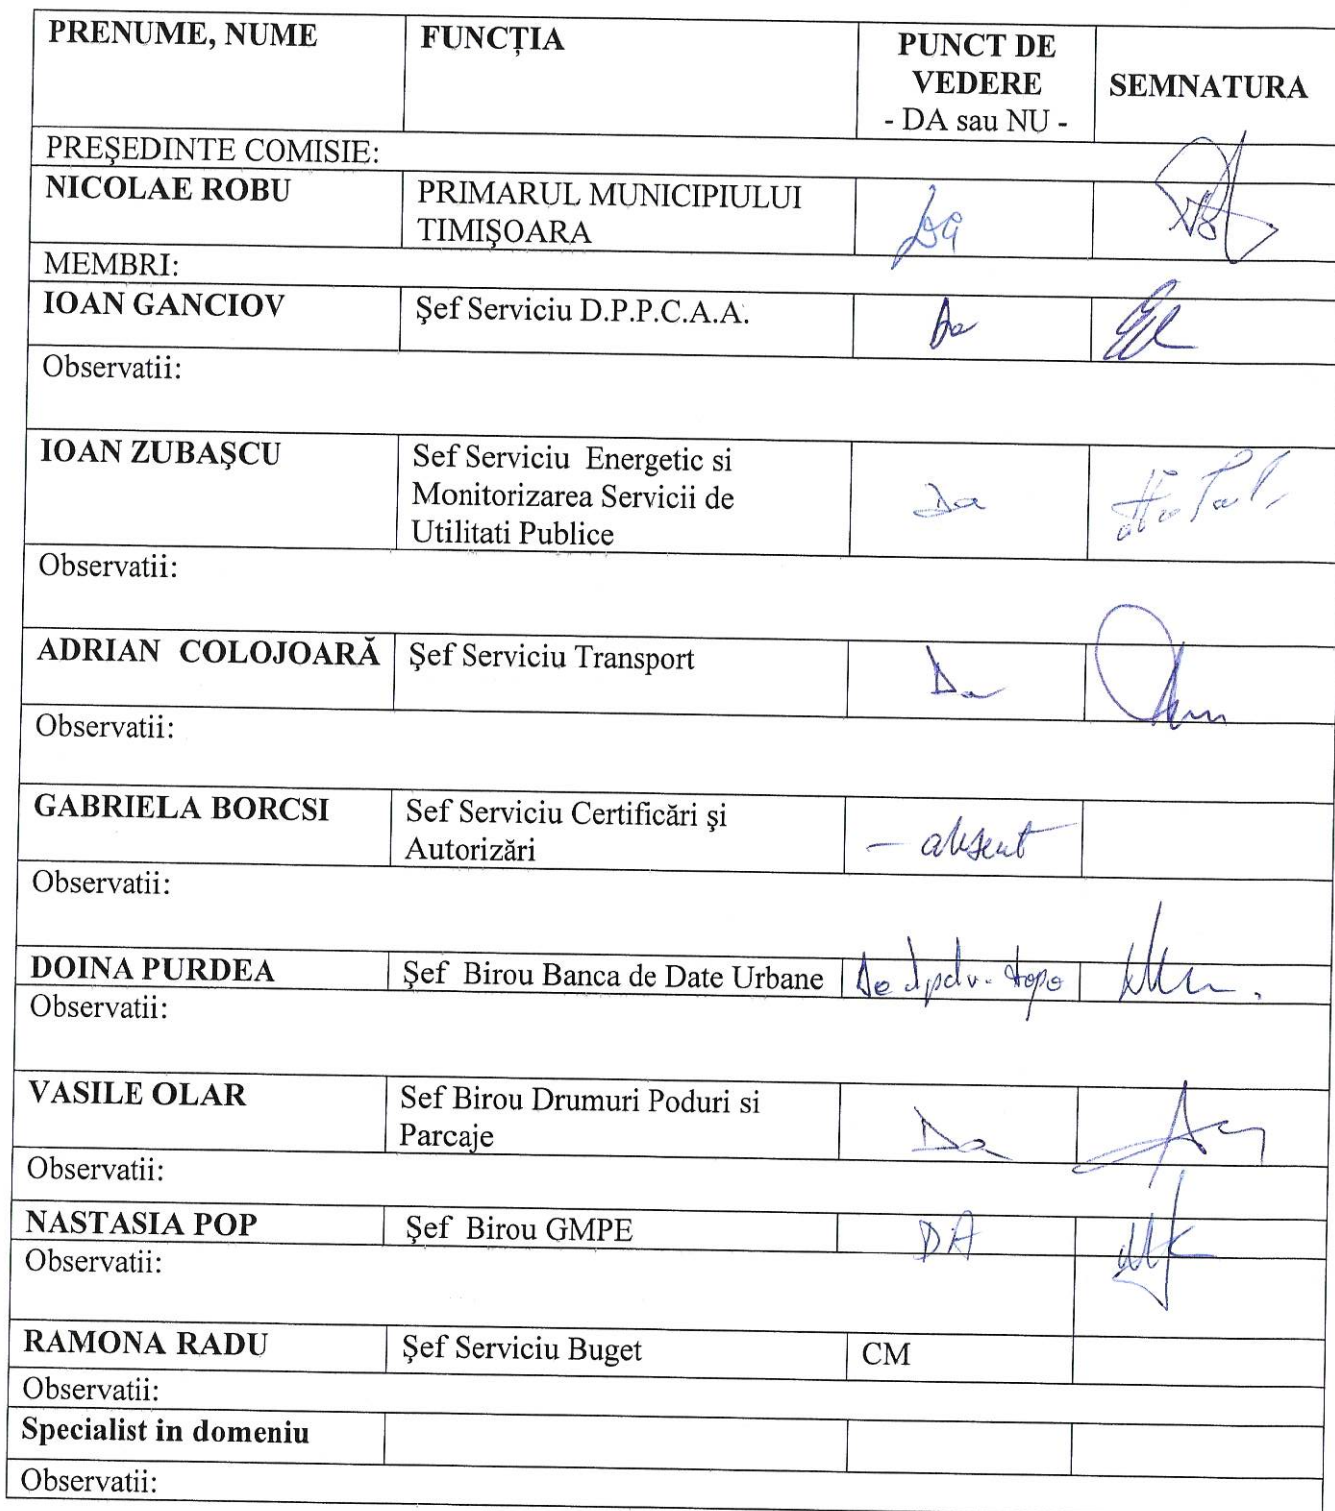 PRENUME, NUME FUNCȚIA PUNCT DE VEDERE - DA sau NU - SEMNATURA
PREŞEDINTE COMISIE:
NICOLAE ROBU PRIMARUL MUNICIPIULUI Da
TIMIŞOARA
MEMBRI:
IOAN GANCIOV Şef Serviciu D.P.P.C.A.A. Da
Observatii:
IOAN ZUBAŞCU Sef Serviciu Energetic si
Monitorizarea Servicii de Da
Utilitati Publice
Observatii:
ADRIAN COLOJOARĂ Şef Serviciu Transport Da
Observatii:
GABRIELA BORCSI Sef Serviciu Certificări şi
Autorizări – absent
Observatii:
DOINA PURDEA Şef Birou Banca de Date Urbane Da dpdv. topo
Observatii:
VASILE OLAR Sef Birou Drumuri Poduri si
Parcaje Da
Observatii:
NASTASIA POP Şef Birou GMPE DA
Observatii:
RAMONA RADU Şef Serviciu Buget CM
Observatii:
Specialist in domeniu
Observatii: